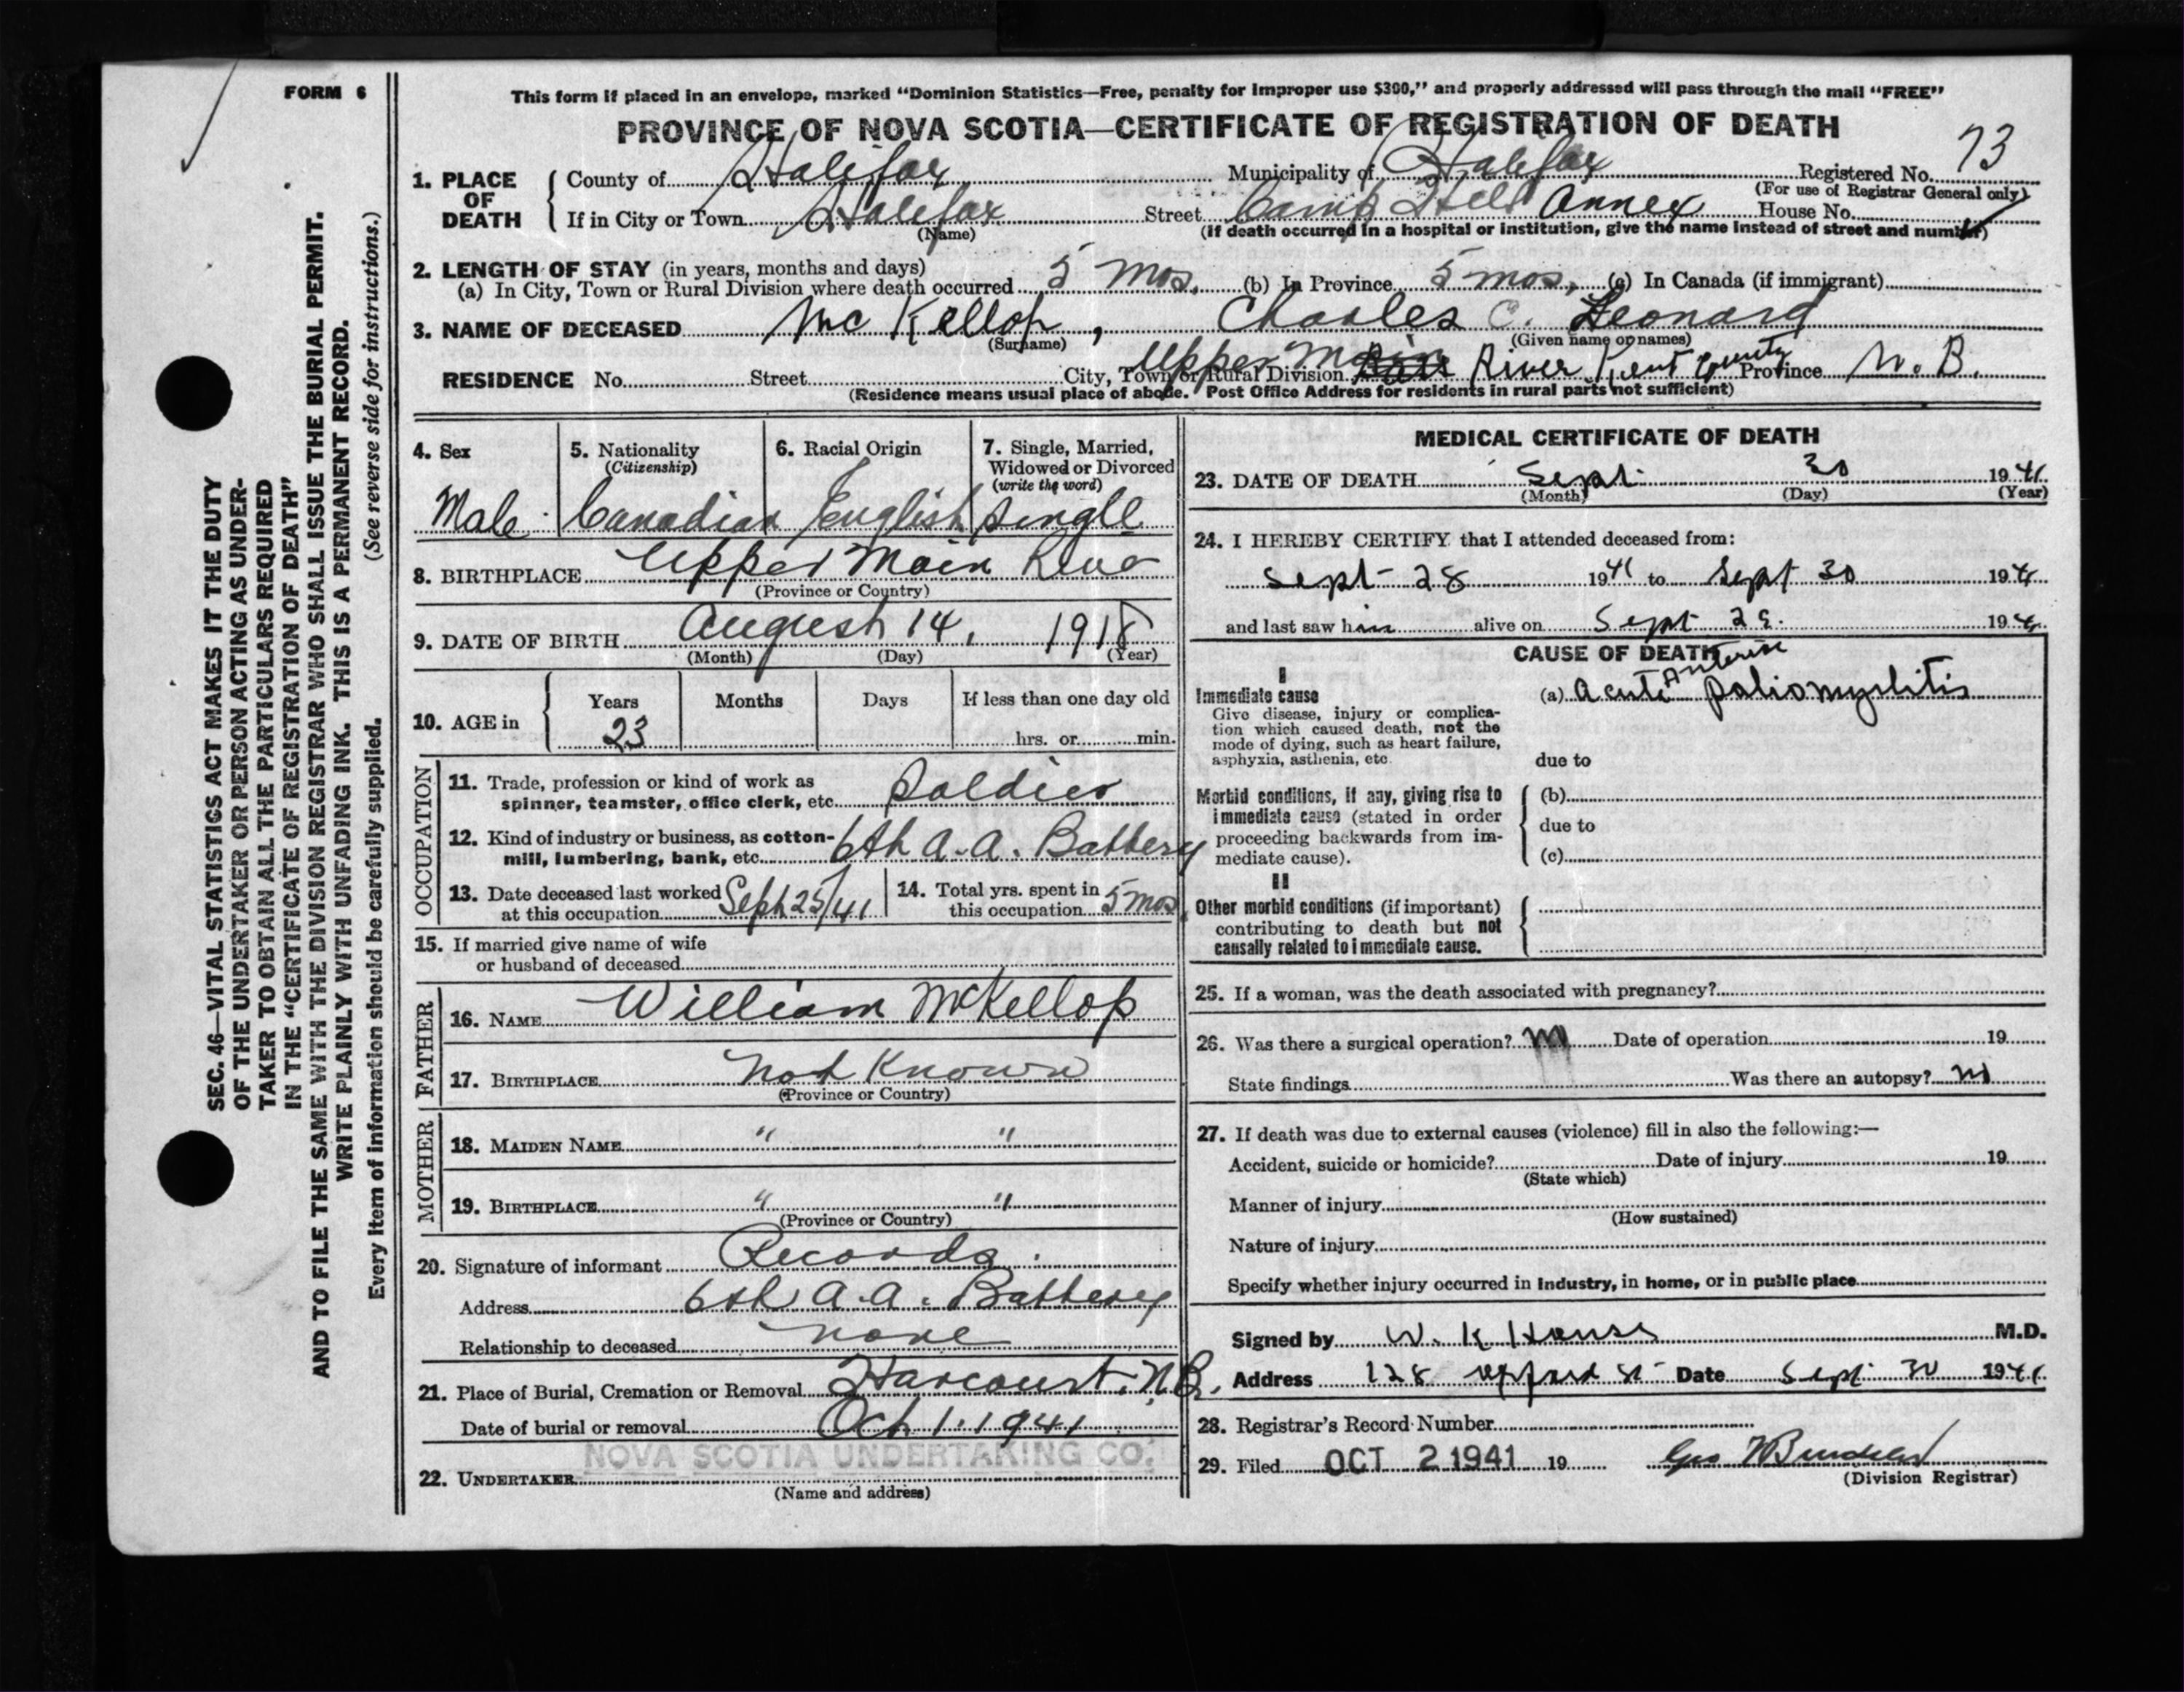 FORM 6
This form if placed in an envelope, marked “Dominion Statistics—Free, penalty for improper use $300,” and properly addressed will pass through the mail “FREE”
PROVINCE OF NOVA SCOTIA—CERTIFICATE OF REGISTRATION OF DEATH
1. PLACE OF DEATH
County of Halifax Municipality of Halifax Registered No. 73
(For use of Registrar General only)
If in City or Town Halifax Street Camp Hill Annex House No.
(Name) (If death occurred in a hospital or institution, give the name instead of street and number)
2. LENGTH OF STAY (in years, months and days)
(a) In City, Town or Rural Division where death occurred 5 mos. (b) In Province 5 mos. (c) In Canada (if immigrant)
3. NAME OF DECEASED McKellop, Charles C. Leonard
(Surname) (Given name or names)
RESIDENCE No. Street City, Town or Rural Division Upper Main River Kent County Province N.B.
(Residence means usual place of abode. Post Office Address for residents in rural parts not sufficient)
4. Sex
Male
5. Nationality
(Citizenship)
Canadian
6. Racial Origin
English
7. Single, Married,
Widowed or Divorced
(write the word)
Single
8. BIRTHPLACE Upper Main River
(Province or Country)
9. DATE OF BIRTH August 14, 1918
(Month) (Day) (Year)
10. AGE in
Years Months Days If less than one day old
23 hrs. or min.
OCCUPATION
11. Trade, profession or kind of work as
spinner, teamster, office clerk, etc. Soldier
12. Kind of industry or business, as cotton-
mill, lumbering, bank, etc. 6th A.A. Battery
13. Date deceased last worked
at this occupation Sept 25/41
14. Total yrs. spent in
this occupation 5 mos.
15. If married give name of wife
or husband of deceased
FATHER
16. NAME William McKellop
17. BIRTHPLACE Not Known
(Province or Country)
MOTHER
18. MAIDEN NAME " "
19. BIRTHPLACE " "
(Province or Country)
20. Signature of informant Records
Address 6th A.A. Battery
Relationship to deceased none
21. Place of Burial, Cremation or Removal Harcourt, N.B.
Date of burial or removal Oct 1. 1941
NOVA SCOTIA UNDERTAKING CO.
22. UNDERTAKER
(Name and address)
MEDICAL CERTIFICATE OF DEATH
23. DATE OF DEATH Sept 30 1941
(Month) (Day) (Year)
24. I HEREBY CERTIFY that I attended deceased from:
Sept 28 1941 to Sept 30 1941
and last saw him alive on Sept 29. 1941
CAUSE OF DEATH
I
Immediate cause
Give disease, injury or complica-
tion which caused death, not the
mode of dying, such as heart failure,
asphyxia, asthenia, etc.
Anterior
(a) Acute poliomyelitis
due to
Morbid conditions, if any, giving rise to
immediate cause (stated in order
proceeding backwards from im-
mediate cause).
(b)
due to
(c)
II
Other morbid conditions (if important)
contributing to death but not
causally related to immediate cause.
25. If a woman, was the death associated with pregnancy?
26. Was there a surgical operation? no Date of operation 19
State findings Was there an autopsy? no
27. If death was due to external causes (violence) fill in also the following:—
Accident, suicide or homicide? Date of injury 19
(State which)
Manner of injury
(How sustained)
Nature of injury
Specify whether injury occurred in industry, in home, or in public place
Signed by W. K. House M.D.
Address 128 Oxford St Date Sept 30 1941
28. Registrar's Record Number
29. Filed OCT 2 1941 19
(Division Registrar)
SEC. 46—VITAL STATISTICS ACT MAKES IT THE DUTY
OF THE UNDERTAKER OR PERSON ACTING AS UNDER-
TAKER TO OBTAIN ALL THE PARTICULARS REQUIRED
IN THE “CERTIFICATE OF REGISTRATION OF DEATH”
AND TO FILE THE SAME WITH THE DIVISION REGISTRAR WHO SHALL ISSUE THE BURIAL PERMIT.
WRITE PLAINLY WITH UNFADING INK. THIS IS A PERMANENT RECORD.
Every item of information should be carefully supplied. (See reverse side for instructions.)